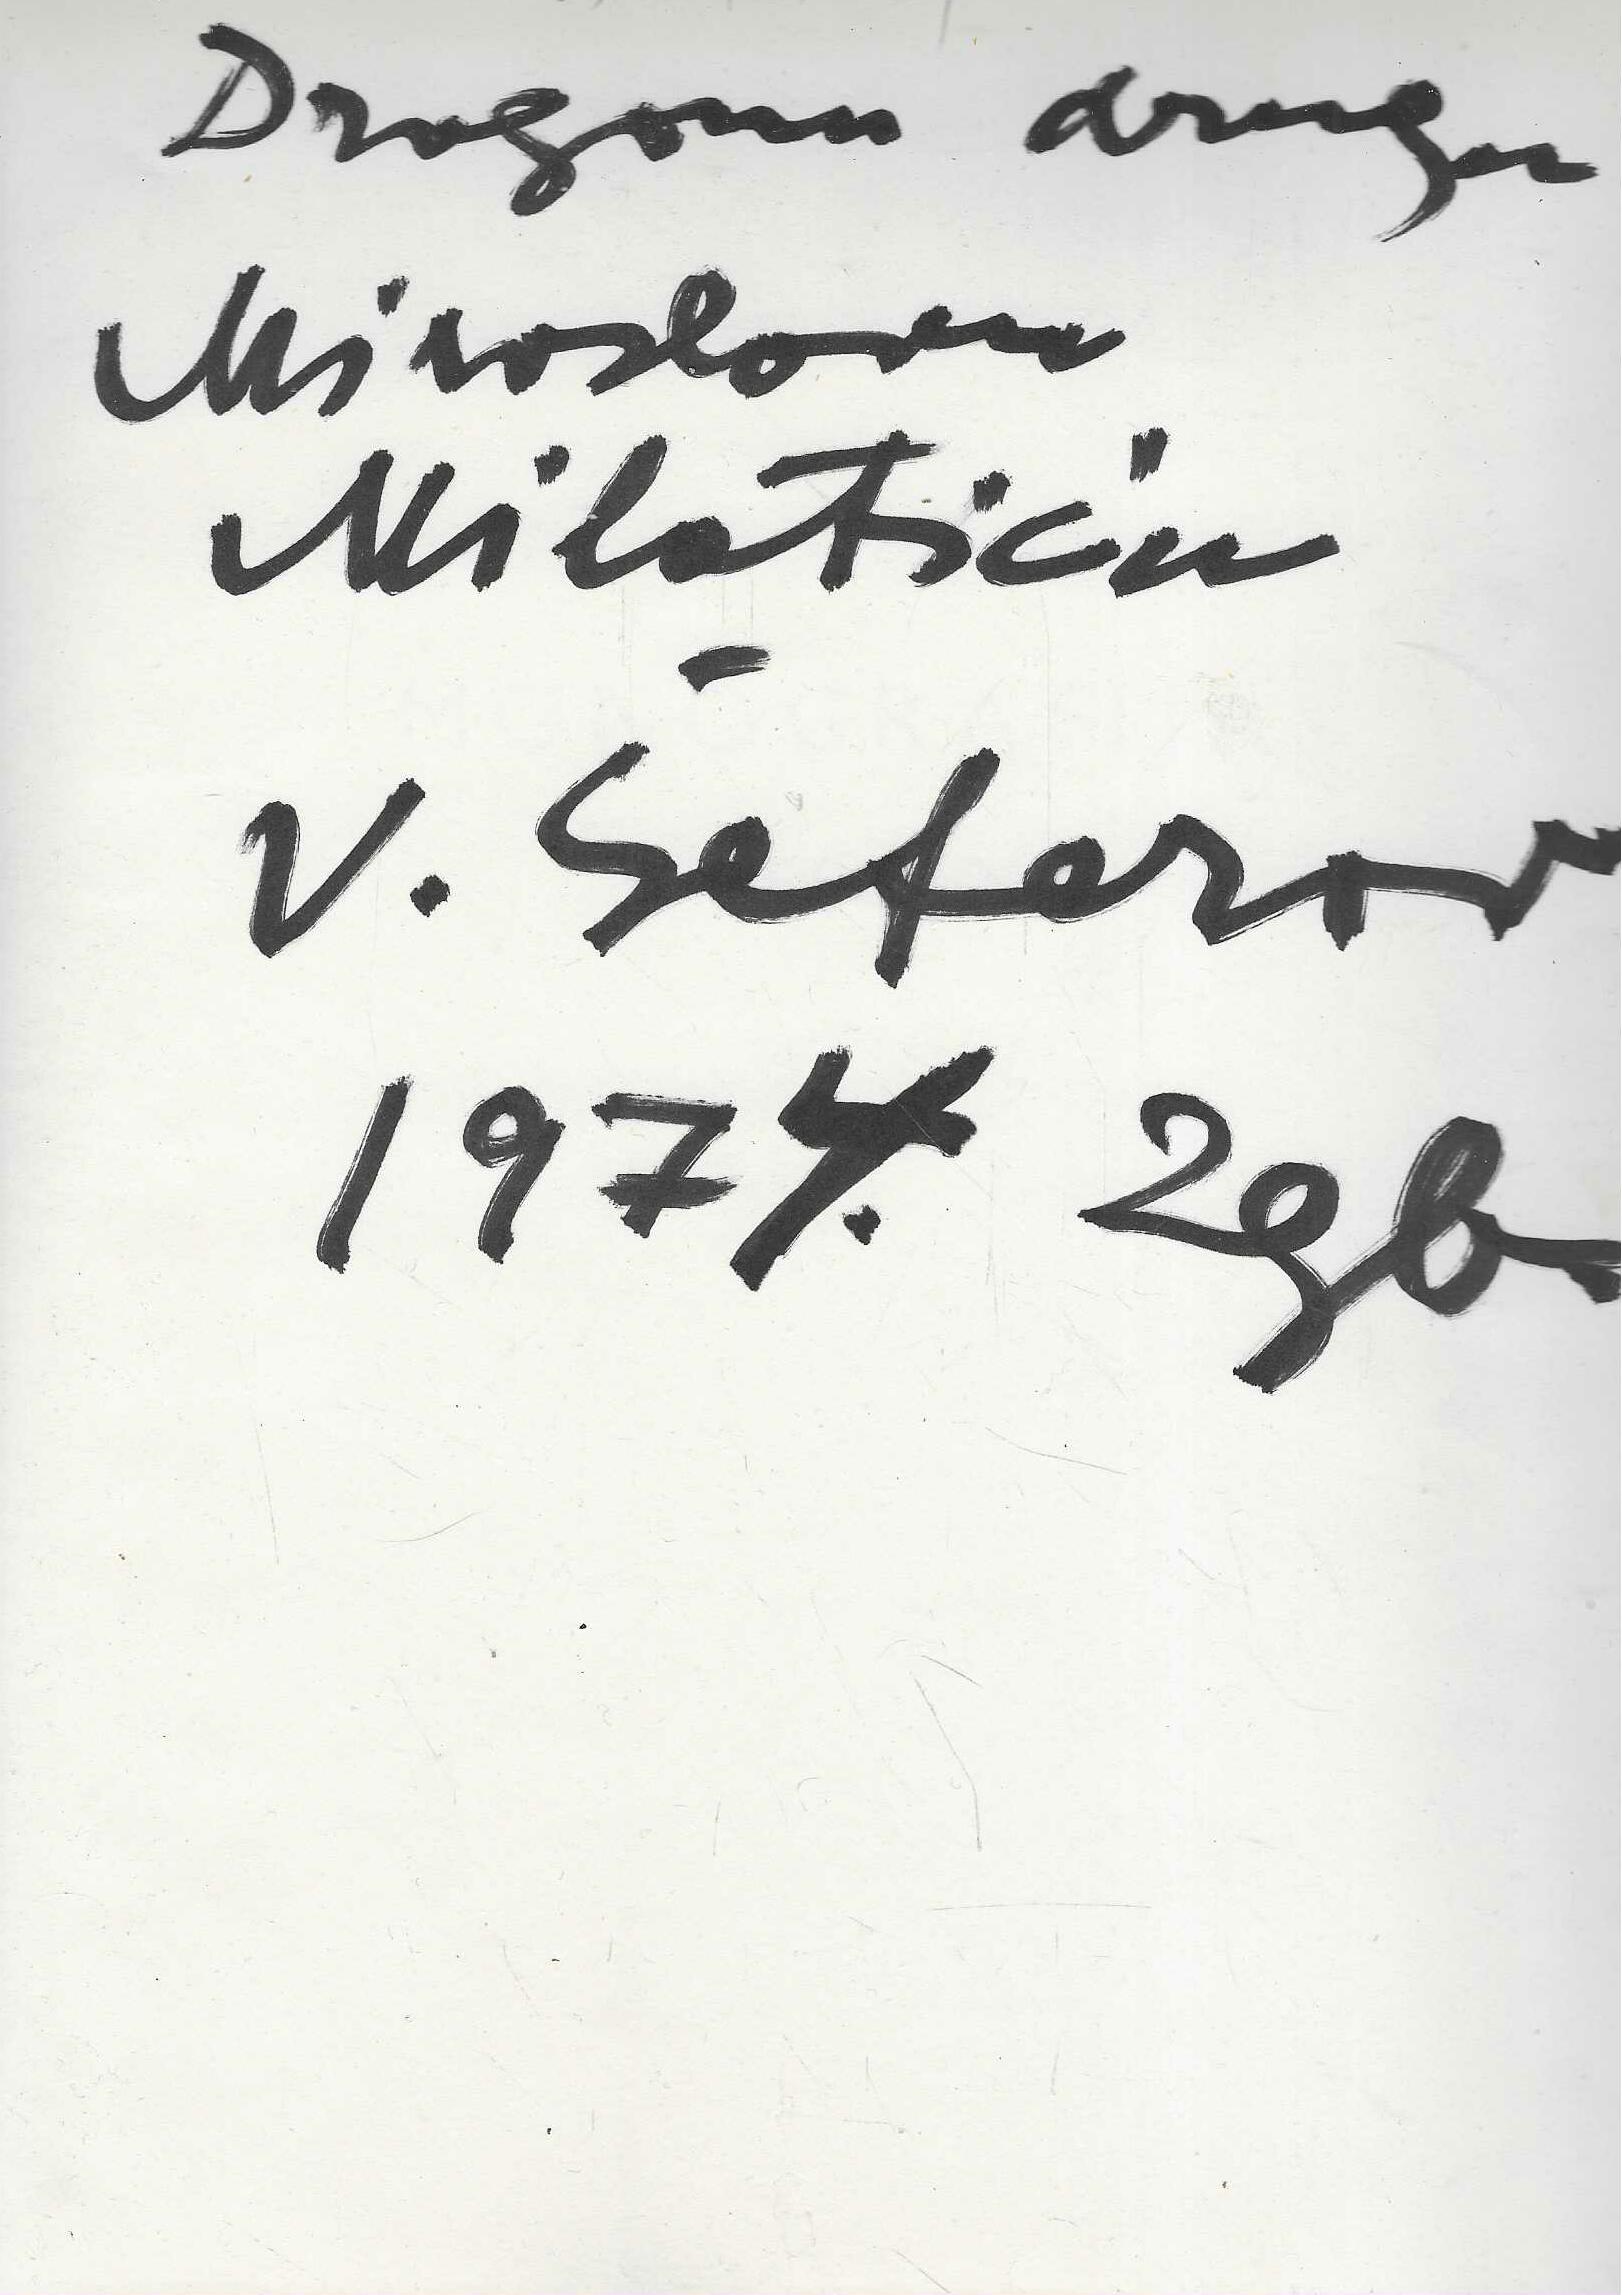 Dragom drugu
Miroslavu
Milatiću
–
V. Šeferov
1974. Zgb.